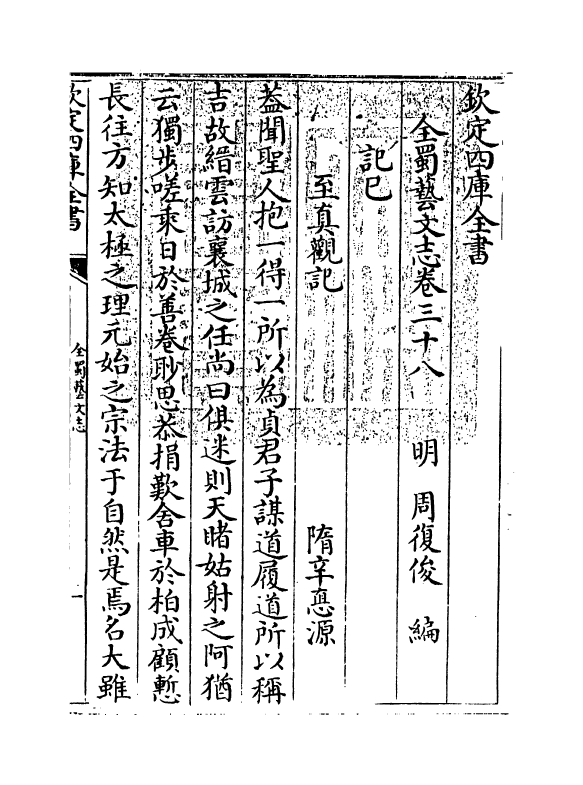 欽定四庫全書
全蜀藝文志卷三十八　明　周復俊　編
記巳
至真觀記　隋辛惪源
葢聞聖人抱一得一所以為貞君子謀道履道所以稱
吉故縉雲訪襄城之任尚曰俱迷則天睹姑射之阿猶
云獨步嗟乘日於善卷眇思恭捐歎舍車於柏成顧慙
長往方知太極之理元始之宗法于自然是焉名大雖
欽定四庫全書
全蜀藝文志
一